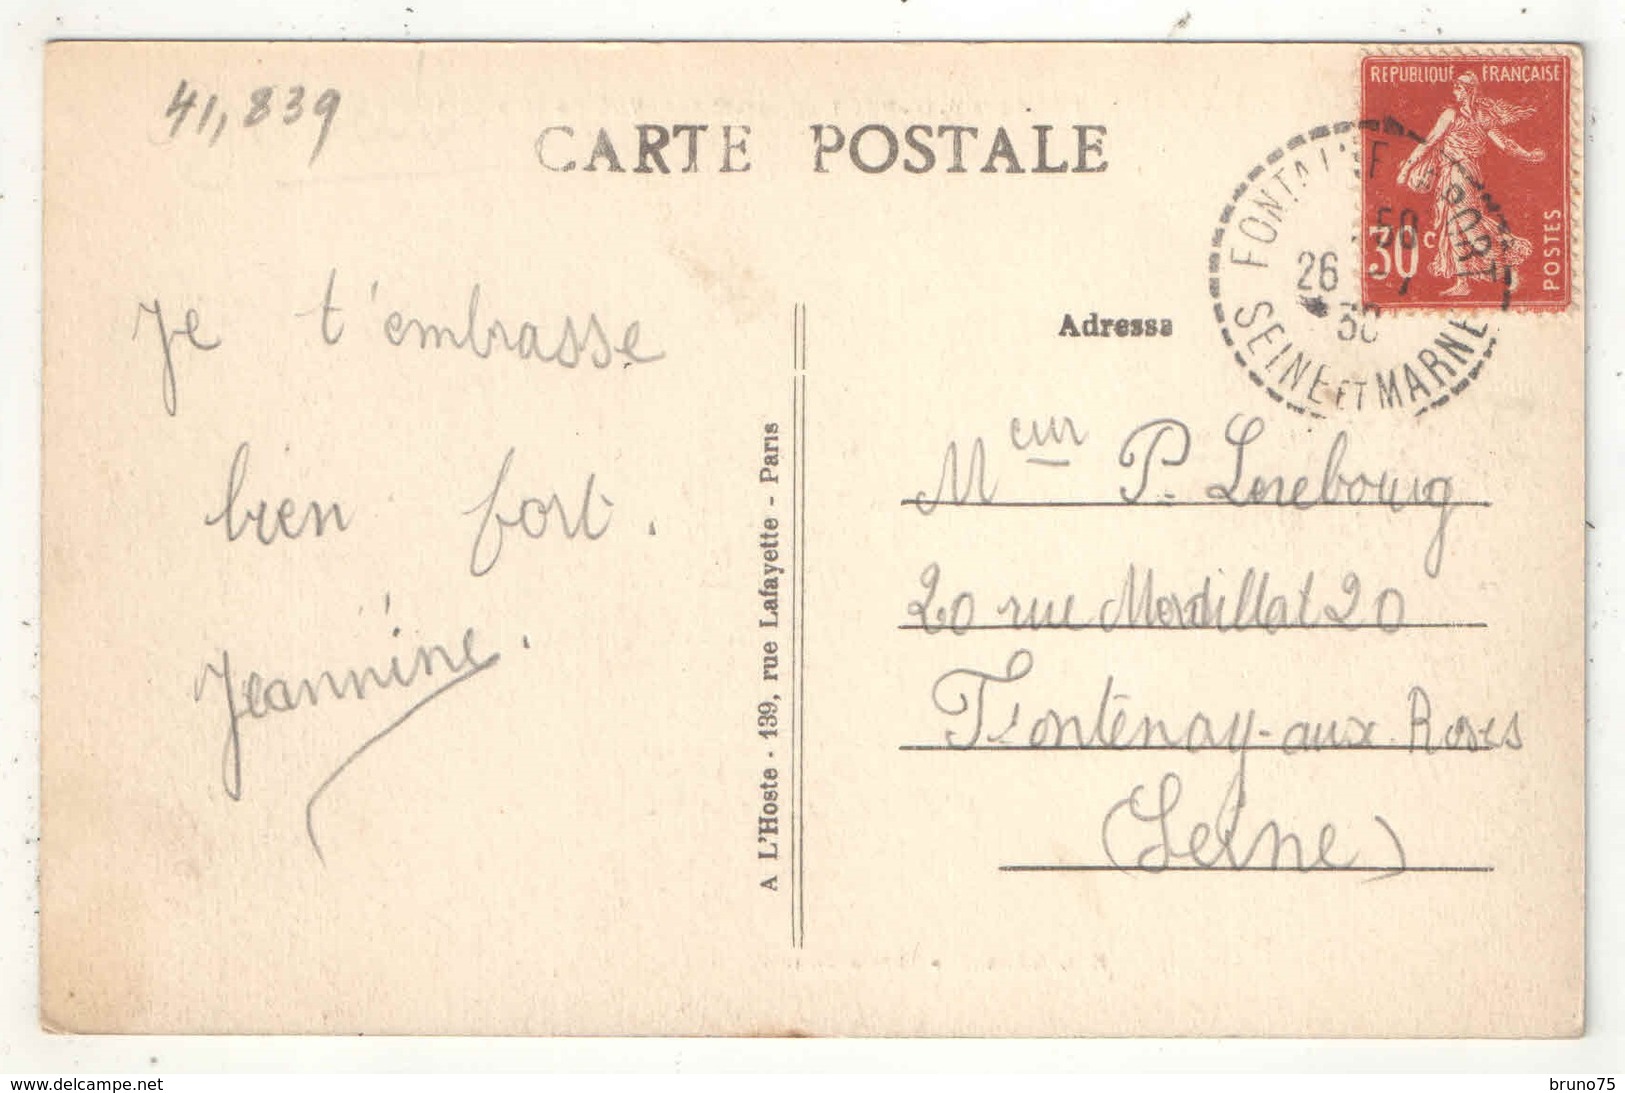 41,839
CARTE POSTALE
REPUBLIQUE FRANÇAISE
30c
POSTES
FONTAINE LE PORT
50
26
30
SEINE ET MARNE
Je t'embrasse
bien fort.
Jeannine.
A L'Hoste - 139, rue Lafayette - Paris
Adresse
Mcur P. Lerebourg
20 rue Mordillat 20
Fontenay-aux-Roses
(Seine)
www.delcampe.net
bruno75